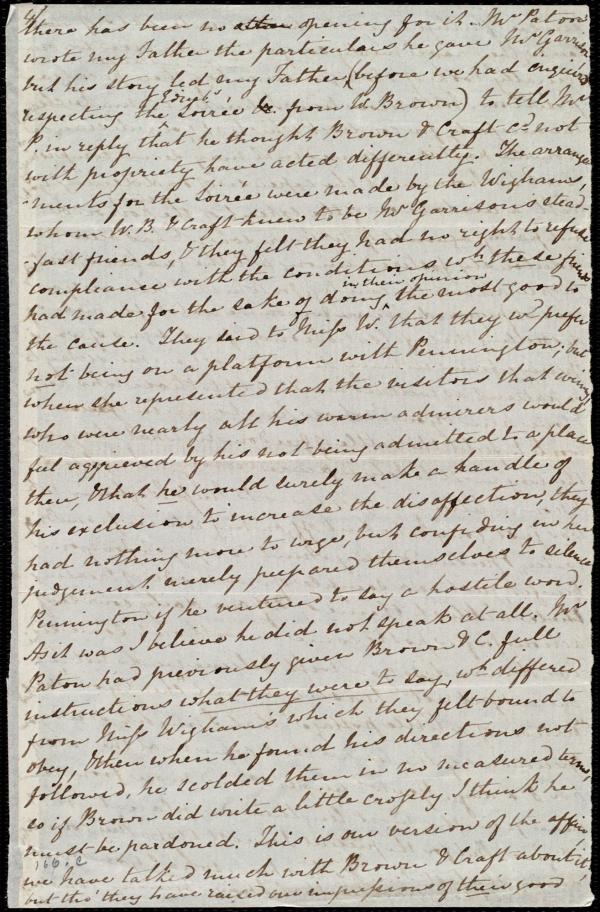 there has been no other opening for it. Mr Paton
wrote my Father the particulars he gave Mr Garrison
but his story led my Father (before we had enquired
respecting the Edinbh Soirée &c. from W. Brown) to tell Mr
P. in reply tht he thought Brown & Craft cd not
with propriety have acted differently. The arrange
-ments for the Soirée were made by the Wighams,
whom W. B. & Craft knew to be Mr Garrison's stead-
-fast friends, & they felt they had no right to refuse
compliance with the conditions wh these friends
had made for the sake of doing, in their opinion, the most good to
the cause. They said to Miss W. that they wd prefer
not being on a platform with Pennington; but
when she represented that the visitors that evening
who were nearly all his warm admirers would
feel aggrieved by his not being admitted to a place
there, & that he would surely make a handle of
his exclusion to increase the disaffection, they
had nothing more to urge, but confiding in her
judgement merely prepared themselves to silence
Pennington if he ventured to say a hostile word.
As it was I believe he did not speak at all. Mr
Paton had previously given Brown & C. full
instructions what they were to say, wh differed
from Miss Wigham's which they felt bound to
obey, & then when he found his directions not
followed, he scolded them in no measured terms,
so if Brown did write a little crossly I think he
must be pardoned. This is our version of the affair
we have talked much with Brown & Craft about it,
but tho' they have raised our impressions of their good